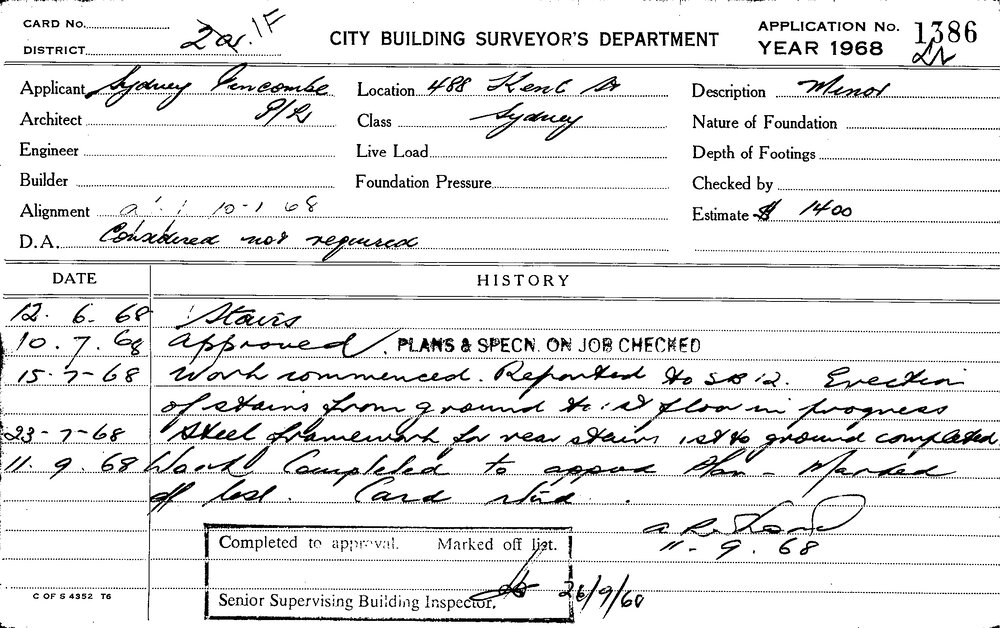 CARD No.
DISTRICT
2ar. 1F
CITY BUILDING SURVEYOR'S DEPARTMENT
APPLICATION No. 1386
YEAR 1968
Applicant Sydney P/L
Location 488 Kent St
Description Minor
Architect
Class Sydney
Nature of Foundation
Engineer
Live Load
Depth of Footings
Builder
Foundation Pressure
Checked by
Alignment 10-1 68
Estimate $ 1400
D.A. Considered not required
DATE HISTORY
12. 6. 68 Stairs
10. 7. 68 Approved. PLANS & SPECN. ON JOB CHECKED
15-7-68 Work commenced. Reported to SB 12. Erection
of stairs from ground to 1st floor in progress
23-7-68 Steel framework for rear stairs 1st to ground completed
11. 9. 68 Work Completed to approd Plan - Marked
off list. Card
11. 9. 68
Completed to approval. Marked off list.
26/9/68
Senior Supervising Building Inspector.
C OF S 4352 T6